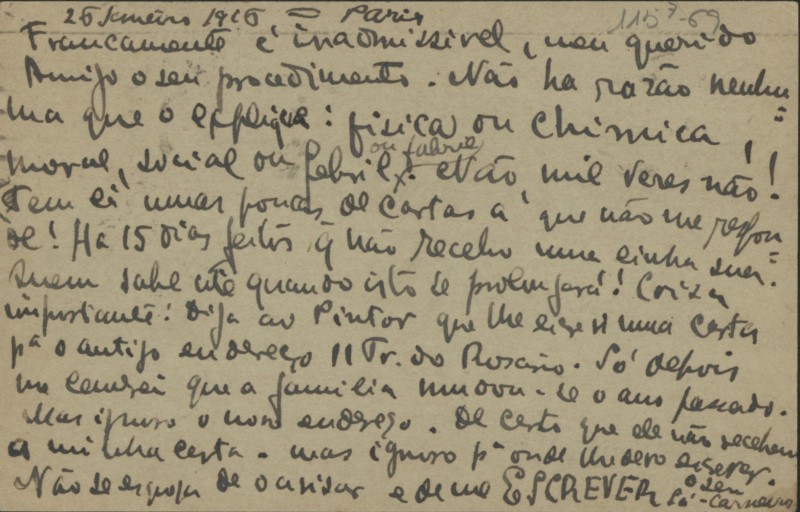 26 Janeiro 1916 = Paris
115³-69
Francamente é inadmissivel, meu querido
Amigo o seu procedimento. Não ha razão nenhu=
ma que o explique: fisica ou chimica,
moral, social ou febril ou fabril. Não, mil veses não!
Tem lá umas poucas de cartas a que não me respon=
de! Ha 15 dias feitos q não recebo uma linha sua.
Quem sabe até quando isto se prolongará! Coisa
importante: Diga ao Pintor que lhe escrevi uma carta
pª o antigo endereço 11 Tr. do Rosario. Só depois
me lembrei que a familia mudou-se o ano passado.
Mas ignoro o novo endereço. De certo que ele não recebeu
a minha carta. mas ignoro pª onde lhe devo escrever.
Não se esqueça de o avisar e de me ESCREVER
o seu
Sá-Carneiro